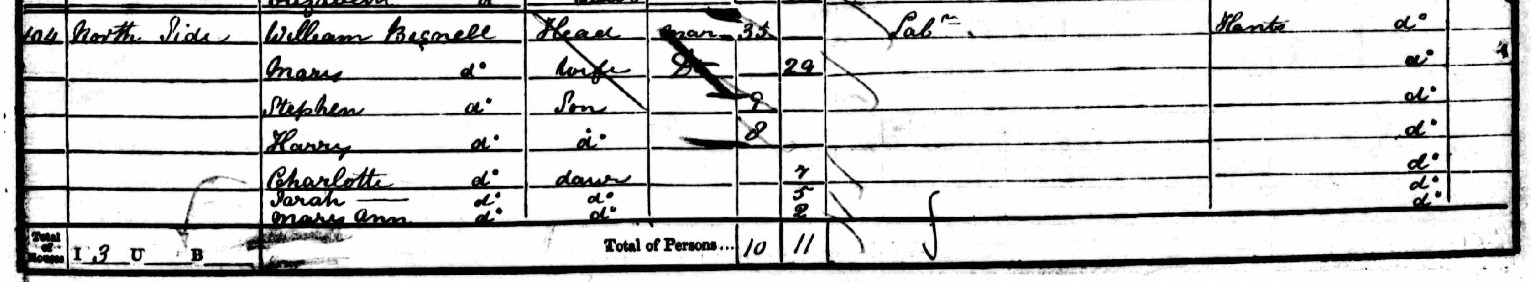 Elizabeth do
104 North Side William Bignell Head Mar 35 Labr. Hants do
Mary do Wife Do 29 do
Stephen do Son 9 do
Harry do do 8 do
Charlotte do daur 7 do
Sarah — do do 5 do
Mary Ann do do 2 do
Total of Houses I 3 U B Total of Persons... 10 11